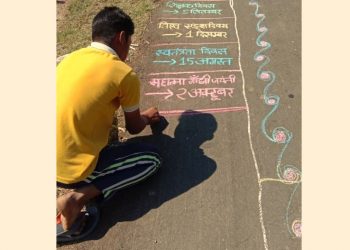 → 5 दिसम्बर
विश्व एड्स दिवस
→ 1 दिसम्बर
स्वतंत्रता दिवस
→ 15 अगस्त
महात्मा गाँधी जयंती
→ 2 अक्टूबर